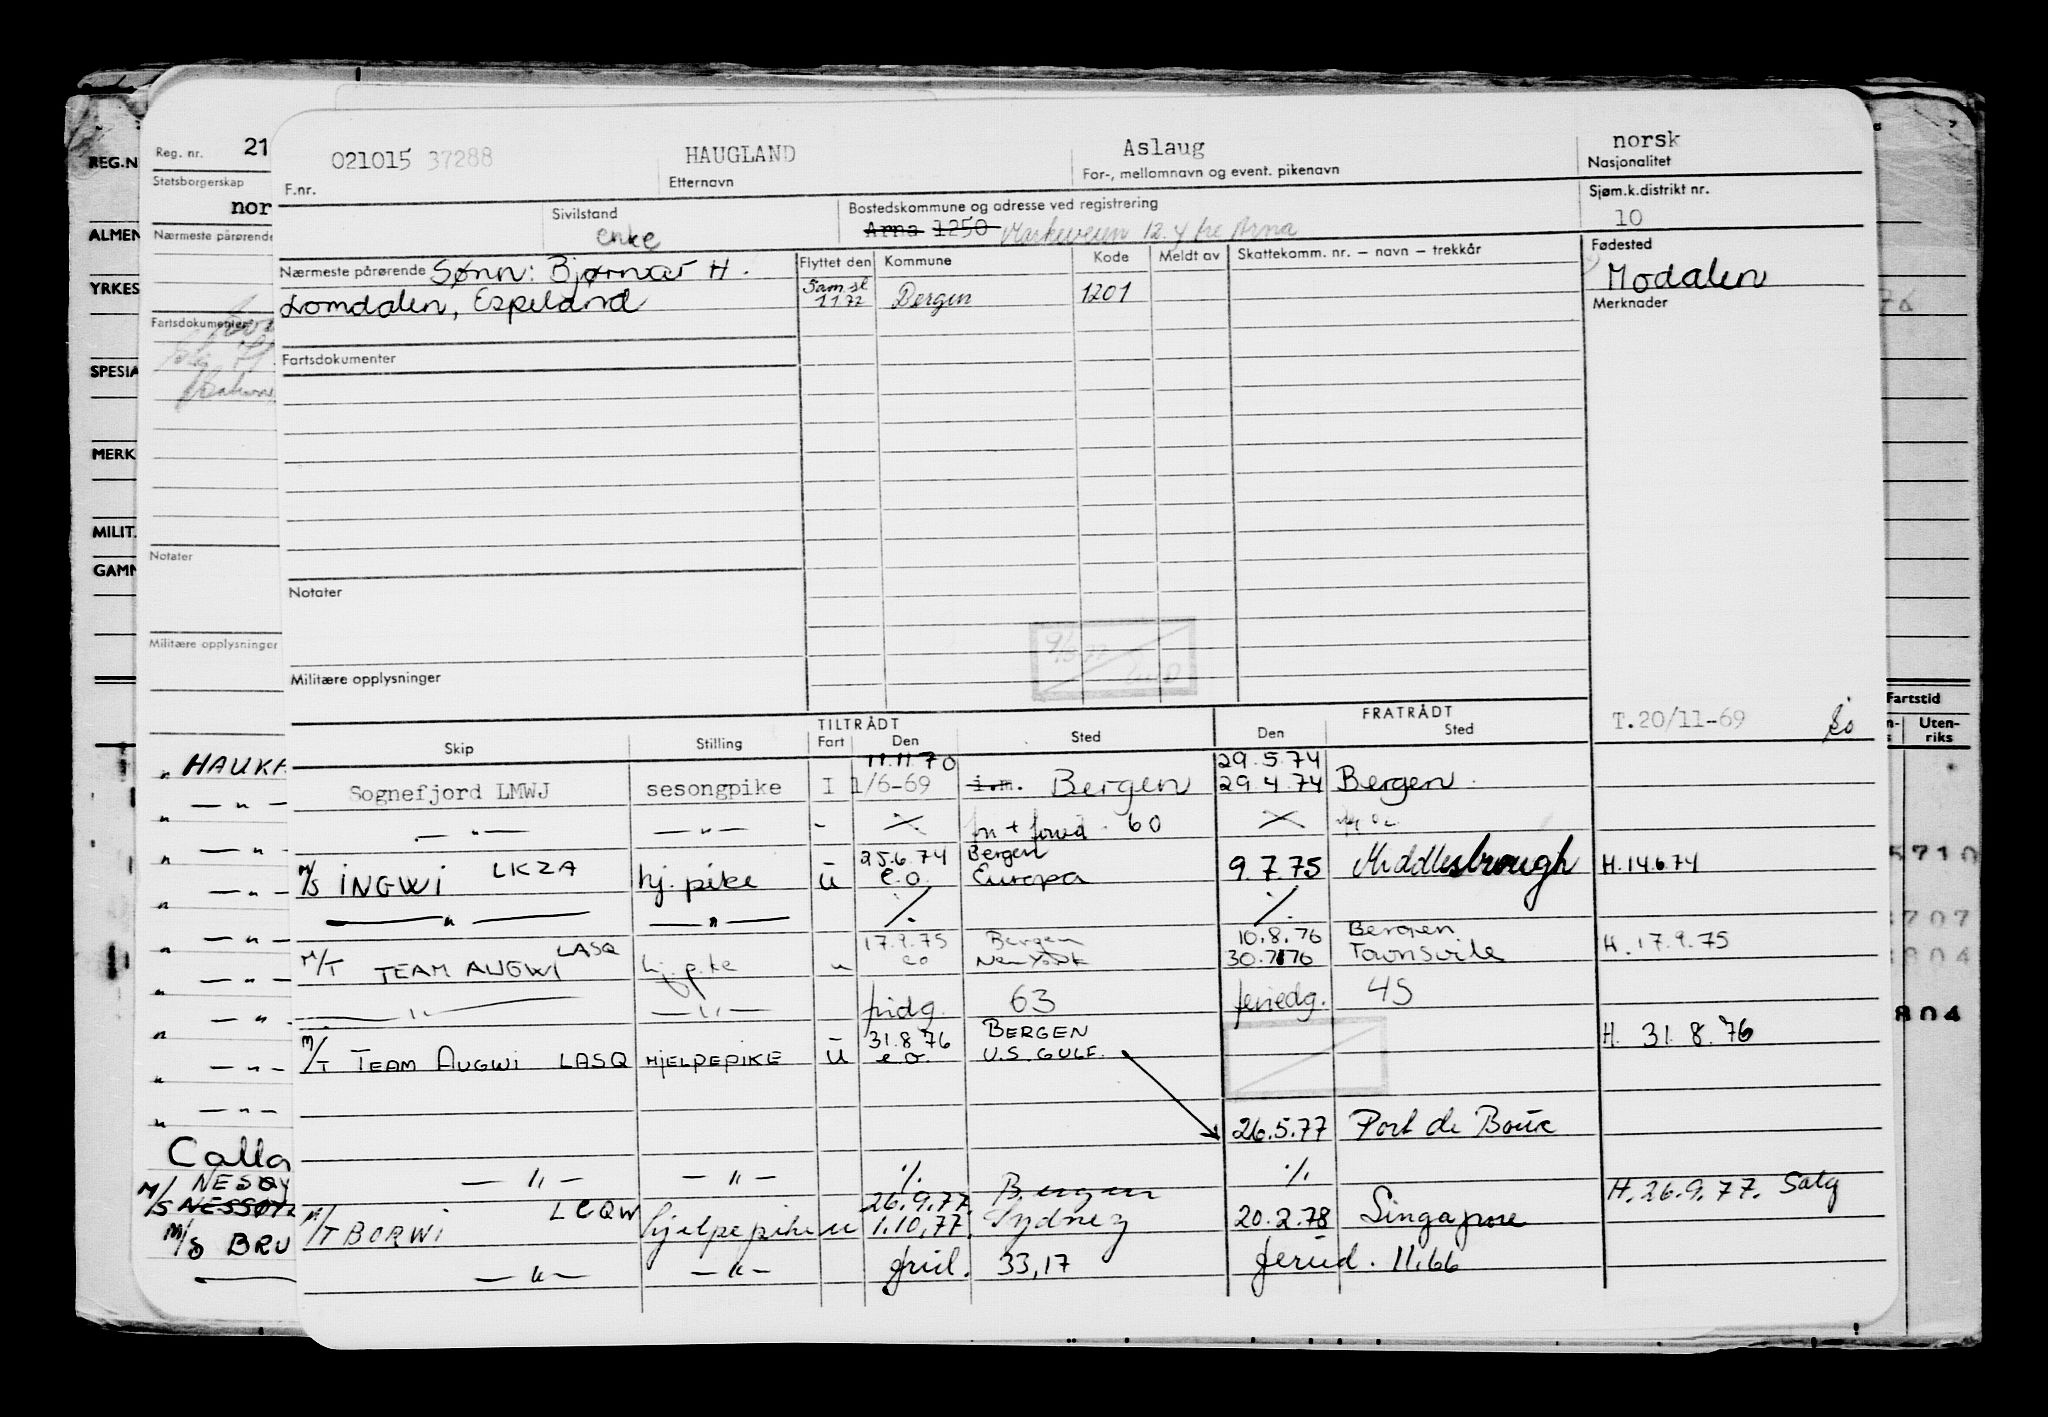 REG.N
Reg. nr. 21
021015 37288 HAUGLAND Aslaug norsk
F.nr. Etternavn For-, mellomnavn og event. pikenavn Nasjonalitet
Statsborgerskap
nor
Sivilstand Bostedskommune og adresse ved registrering Sjøm.k.distrikt nr.
enke Arna 1250 12. Arna 10
ALMEN
Nærmeste pårørende
Nærmeste pårørende Sønn: Bjørnar H. Flyttet den Kommune Kode Meldt av Skattekomm. nr. – navn – trekkår Fødested
Lomdalen, Espeland Sam.sl 1 1 72 Bergen 1201 Modalen
YRKES
Merknader
Fartsdokumenter
Fartsdokumenter
SPESIA
MERK
MILIT.
Notater
GAMN
Notater
Militære opplysninger
Militære opplysninger
Fartstid
TILTRÅDT FRATRÅDT T.20/11-69
Skip Stilling Fart Den Sted Den Sted
Uten-
riks
11.11.70 29.5.74
Sognefjord LMWJ sesongpike I 1/6-69 i.m. Bergen 29.4.74 Bergen.
— " — — " — - 60
25.6.74 Bergen
M/S INGWI LKZA hj. pike u e.o. Europa 9.7.75 Middlesbrough H.14.6.74
— " — — " — ./. ./.
17.9.75 Bergen 10.8.76 Bergen
M/T TEAM AUGWI LASQ hj. pike u eo New York 30.7.76 Townsvile H. 17.9.75
— " — — " — fridg. 63 feriedg. 45
31.8.76 BERGEN
M/T TEAM AUGWI LASQ HJELPEPIKE u e.o. U.S. GULF. H. 31.8.76
26.5.77 Port de Bouc
— " — — " — ./. ./.
26.9.77. Bergen H. 26.9.77. Salg
M/T BORWI LCQW hjelpepike u 1.10.77. Sydney 20.2.78 Singapore
— " — — " — frid. 33,17 feried. 11.66
HAUKA
Calla
M/S NESØY
NESSØY
M/S BRU
5710
707
804
804